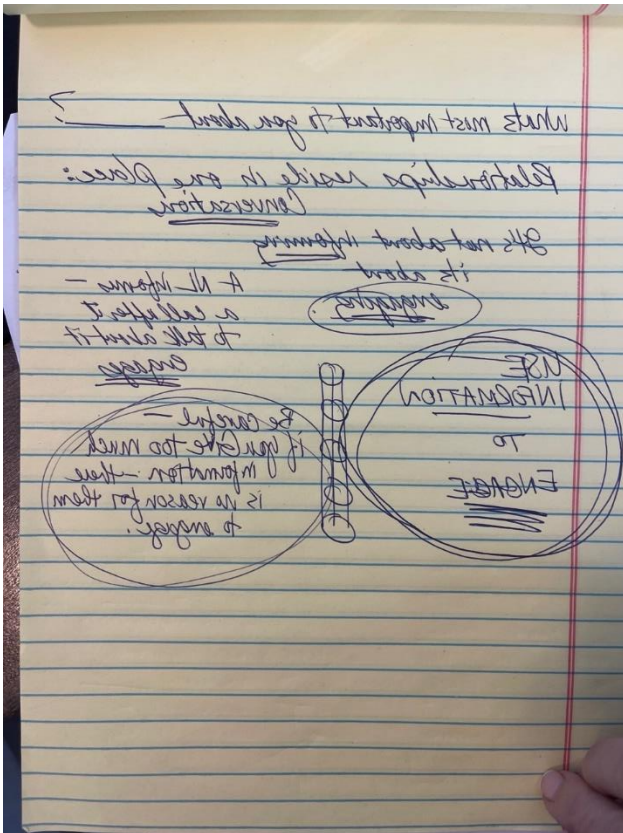 What's most important to you about ______?
Relationships reside in one place:
Conversation
It's not about informing
it's about
engaging
A NL informs —
a call after it
to talk about it
engages
USE
INFORMATION
TO
ENGAGE
Be careful —
if you give too much
information - there
is no reason for them
to engage.